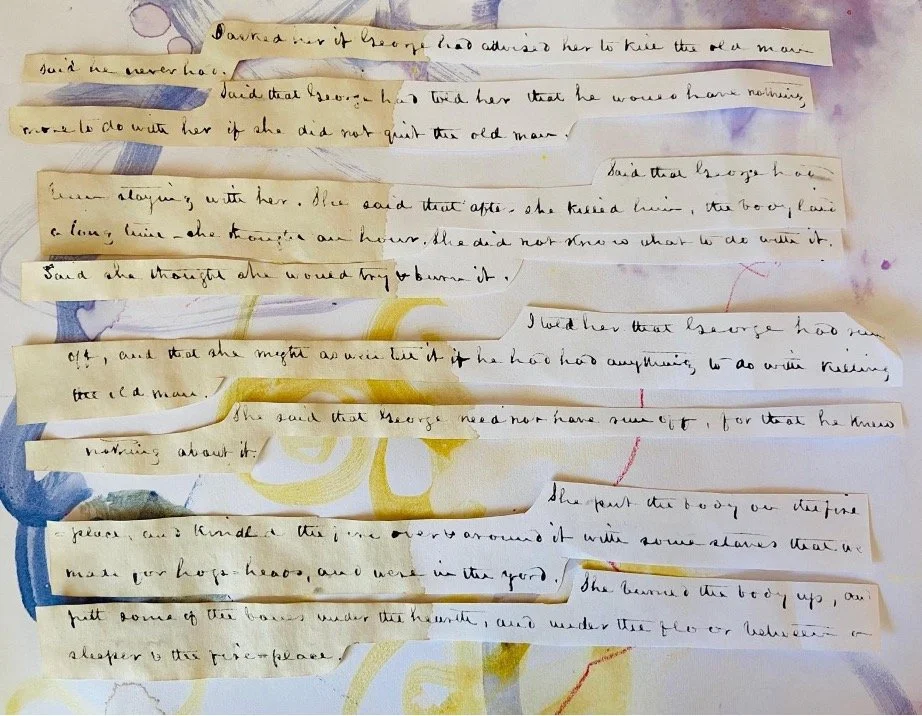 I asked her if George had advised her to kill the old man
said he never had.
Said that George had told her that he would have nothing
more to do with her if she did not quit the old man.
Said that George had
been staying with her. She said that after she killed him, the body laid
a long time – she thought an hour. She did not know what to do with it.
Said she thought she would try & burn it.
I told her that George had run
off, and that she might as well tell it if he had had anything to do with killing
the old man.
She said that George need not have run off, for that he knew
nothing about it.
She put the body on the fire
-place, and kindled the fire over & around it with some staves that
made for hogs-heads, and were in the yard.
She burned the body up, an
put some of the bones under the hearth, and under the floor between a
sleeper & the fire-place.